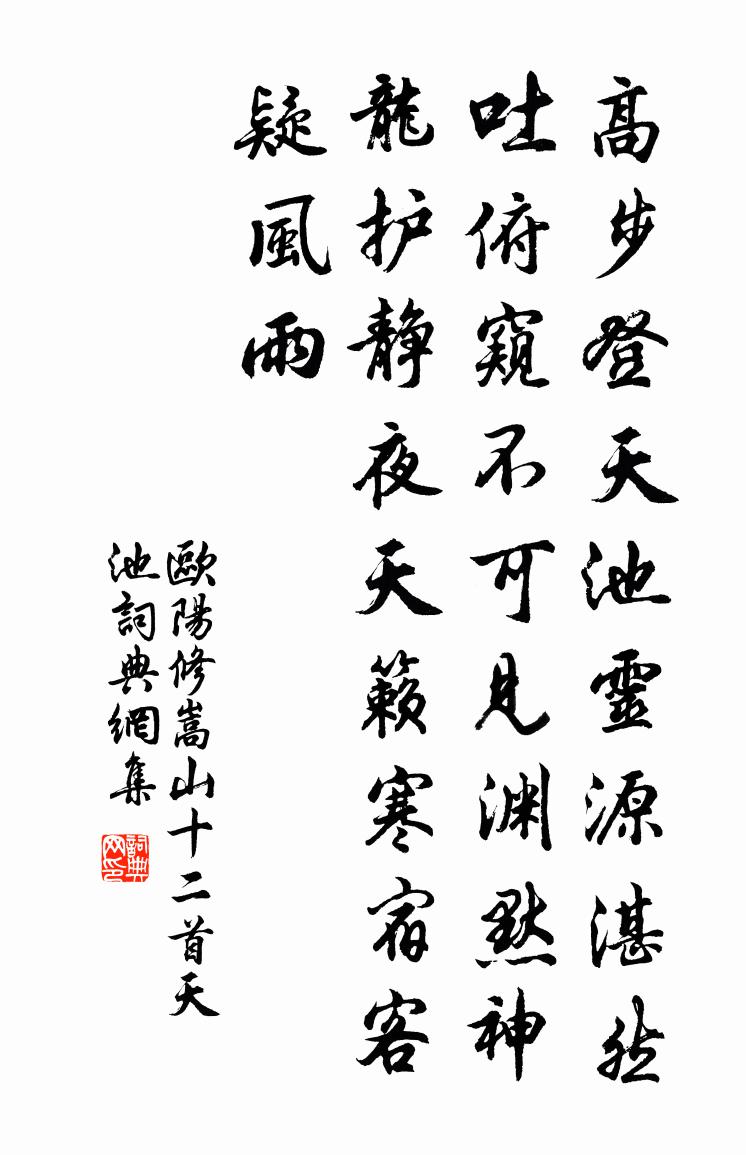 高步登天池靈源湛然
吐俯窺不可見渊黙神
龍护静夜天籟寒宿客
疑風雨
歐陽修嵩山十二首天
池詞典網集
詞典
网印